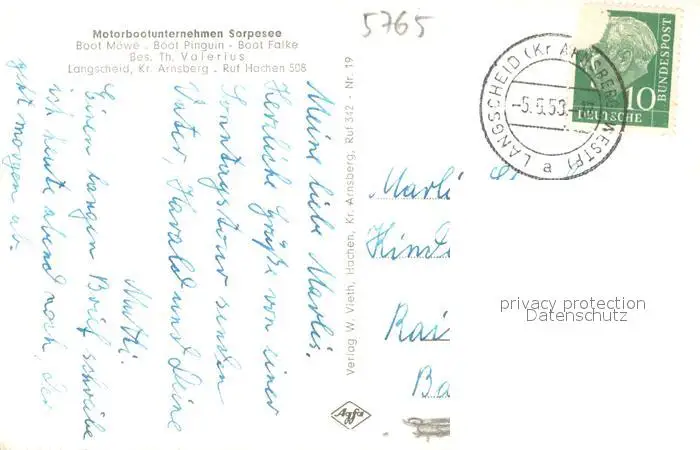 5765
Motorbootunternehmen Sorpesee
Boot Möwe - Boot Pinguin - Boot Falke
Bes. Th. Valerius
Langscheid, Kr. Arnsberg - Ruf Hachen 508
Meine liebe Marlis.
Herzliche Grüße von einer
Sonntagstour senden
Vater, Harald und Deine
Mutti.
Einen langen Brief schreibe
ich heute abend noch, der
geht morgen ab.
Verlag W. Vieth, Hachen, Kr. Arnsberg, Ruf 342 - Nr. 19
LANGSCHEID (Kr ARNSBERG WESTF)
-5.5.58.-
a
10
DEUTSCHE
BUNDESPOST
Marli
Kinde
Rai
Ba
privacy protection
Datenschutz
Agfa